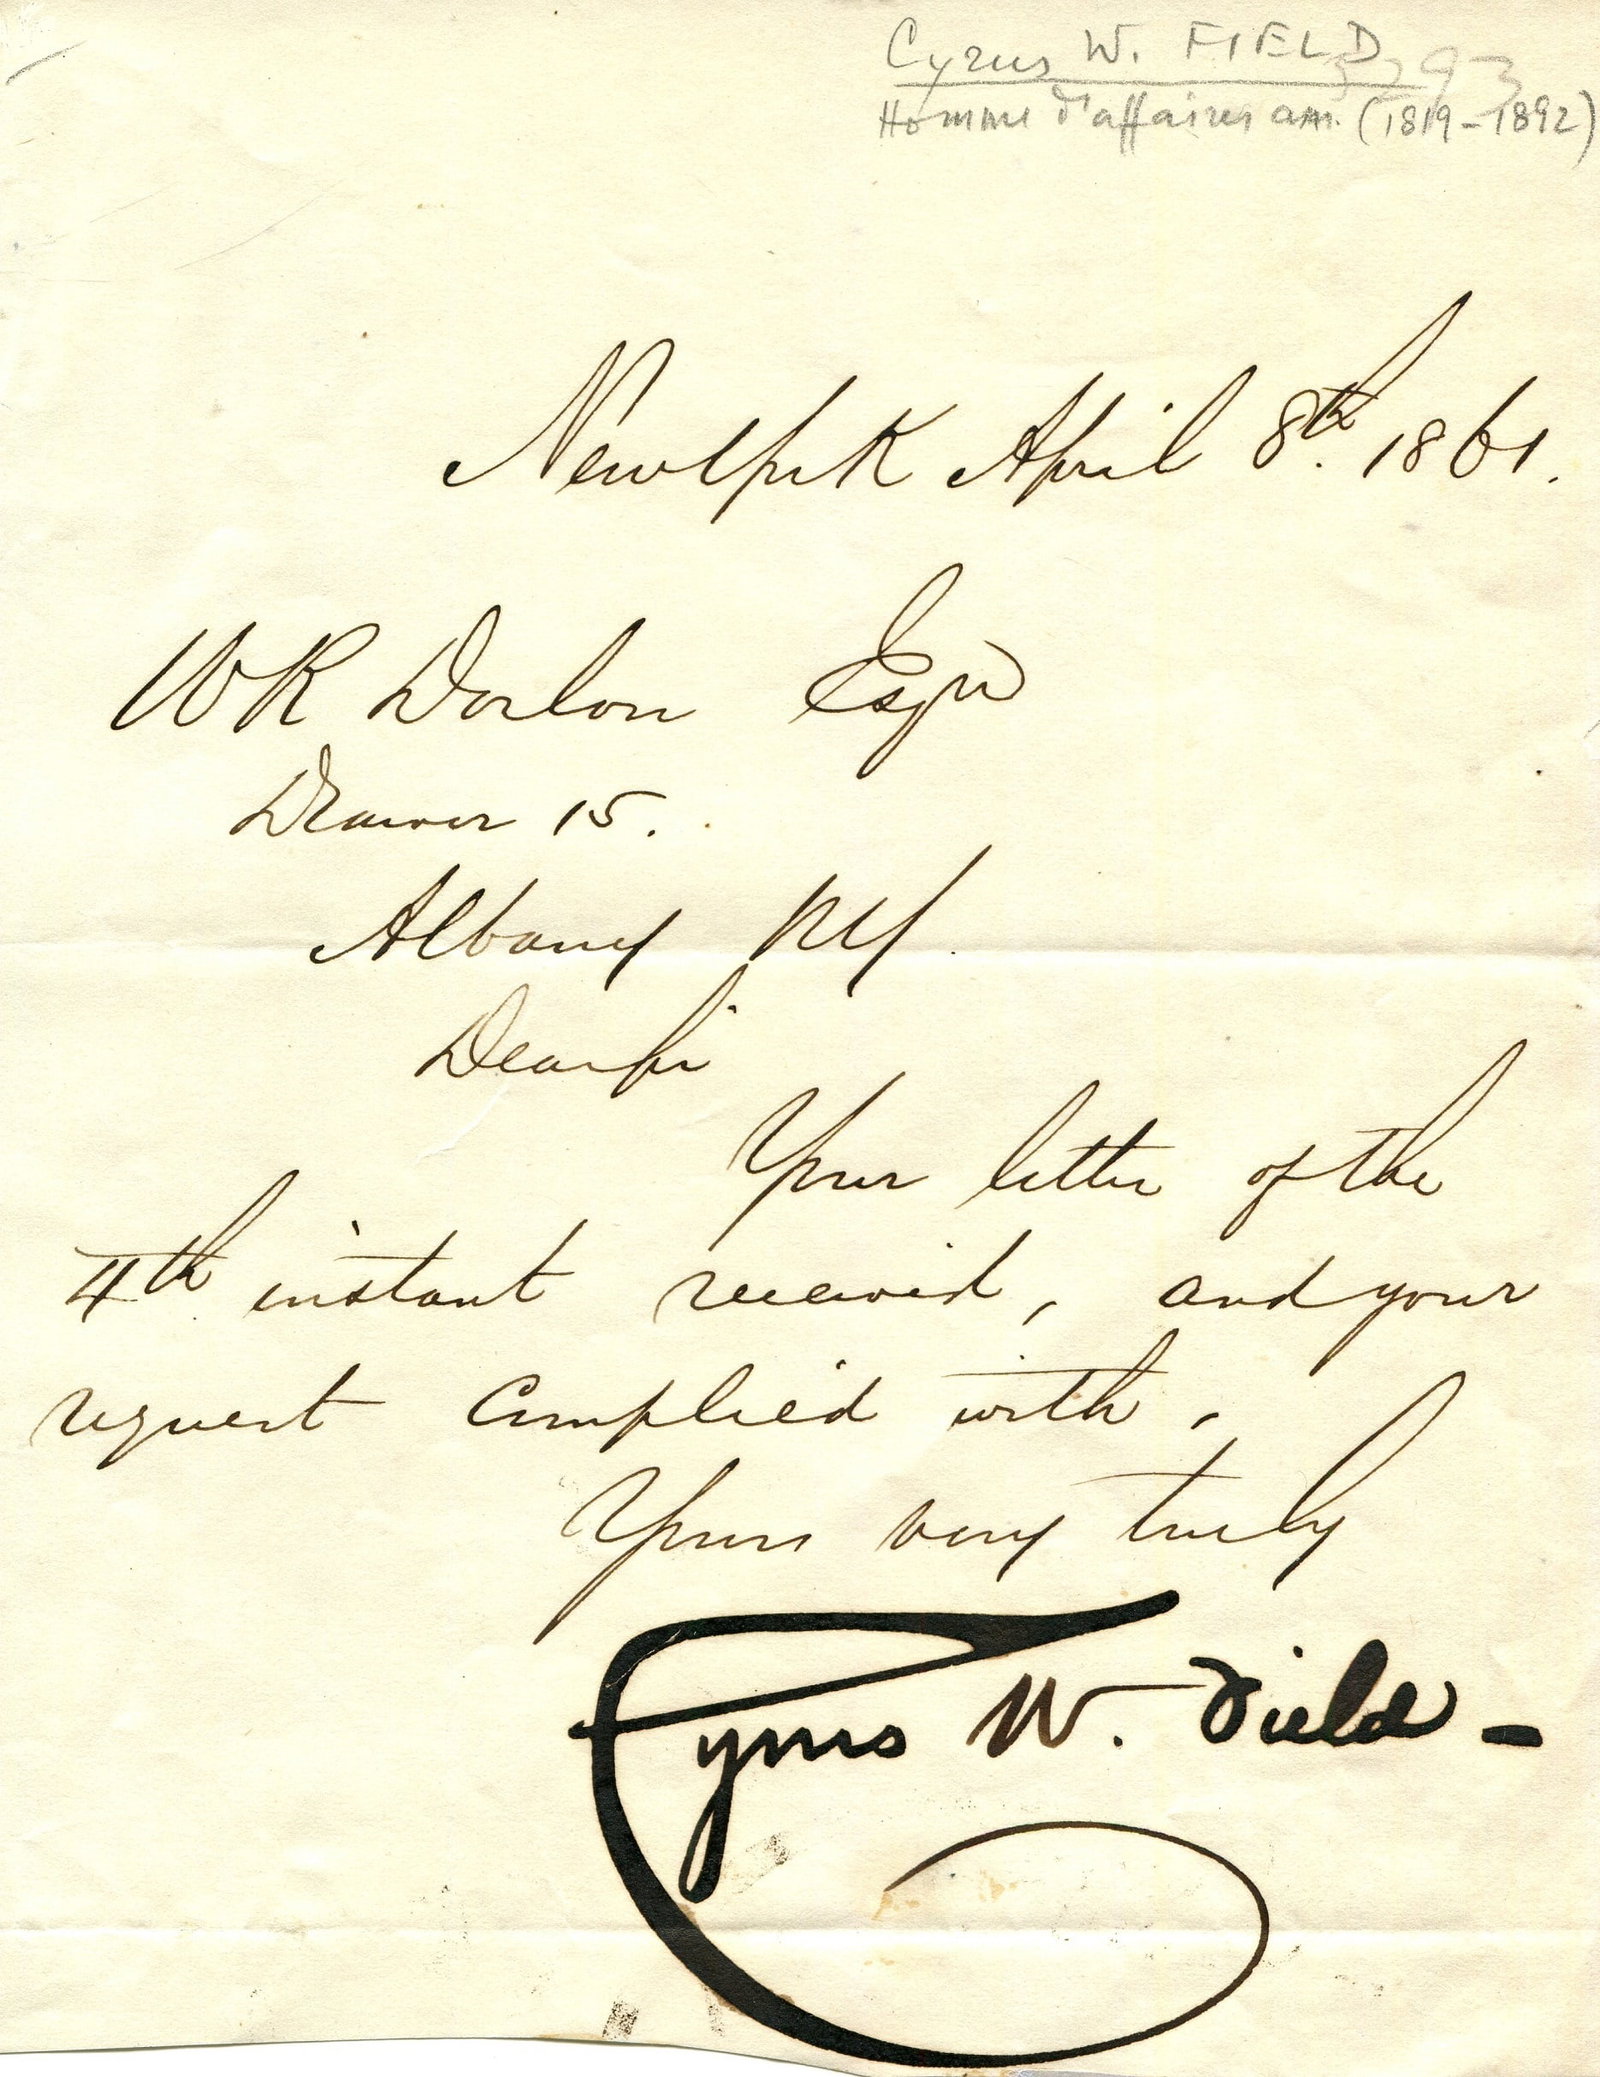 Cyrus W. FIELD
Homme d'affaires am. (1819-1892)
New York April 8th. 1861.
WR Dorlon Esqr
Drawer 15.
Albany NY.
Dear Sir
Your letter of the
4th instant received, and your
request complied with.
Yours very truly
Cyrus W. Field -